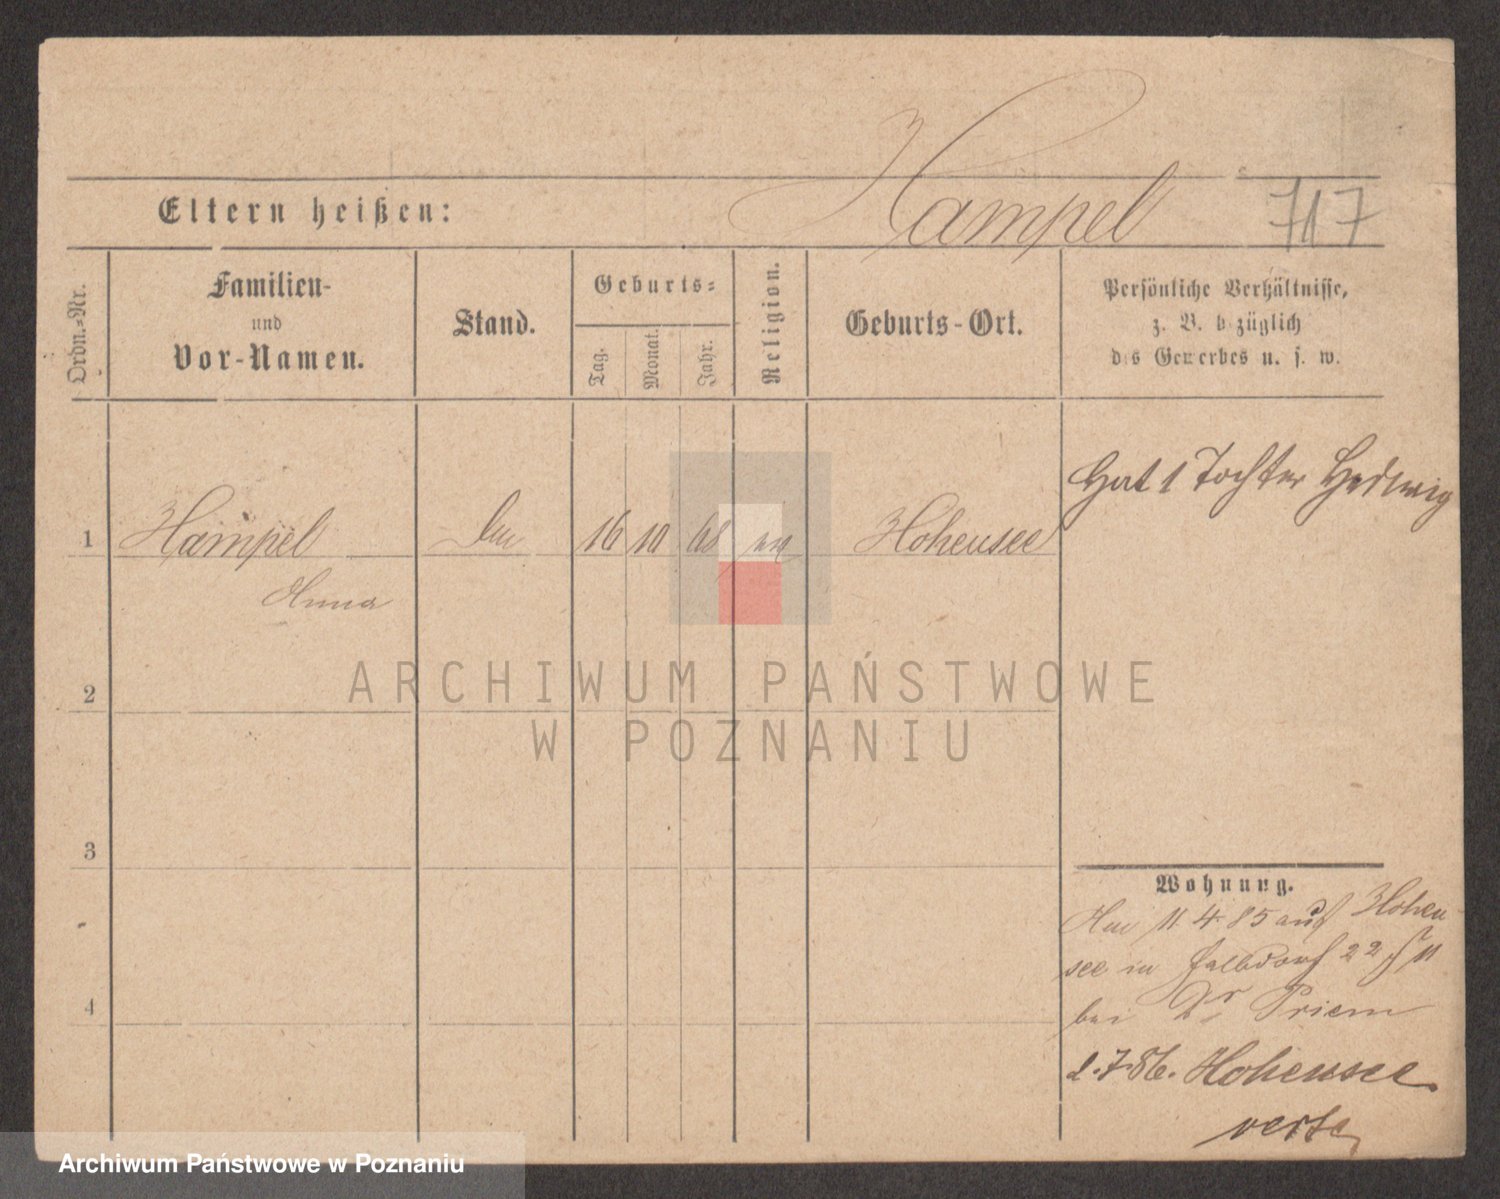 Hampel
717
Eltern heißen:
Ordn.=Nr.
Familien-
und
Vor-Namen.
Stand.
Geburts=
Tag.
Monat.
Jahr.
Religion.
Geburts-Ort.
Persönliche Verhältnisse,
z. B. bezüglich
des Gewerbes u. s. w.
Hat 1 Tochter Hedwig
1 Hampel 16 10 68 Hohensee
Anna
2
3
4
Wohnung.
11 4 85 aus Hohen
see in 22
bei Dr Priem
2.7.86. Hohensee
verte
ARCHIWUM PAŃSTWOWE
W POZNANIU
Archiwum Państwowe w Poznaniu